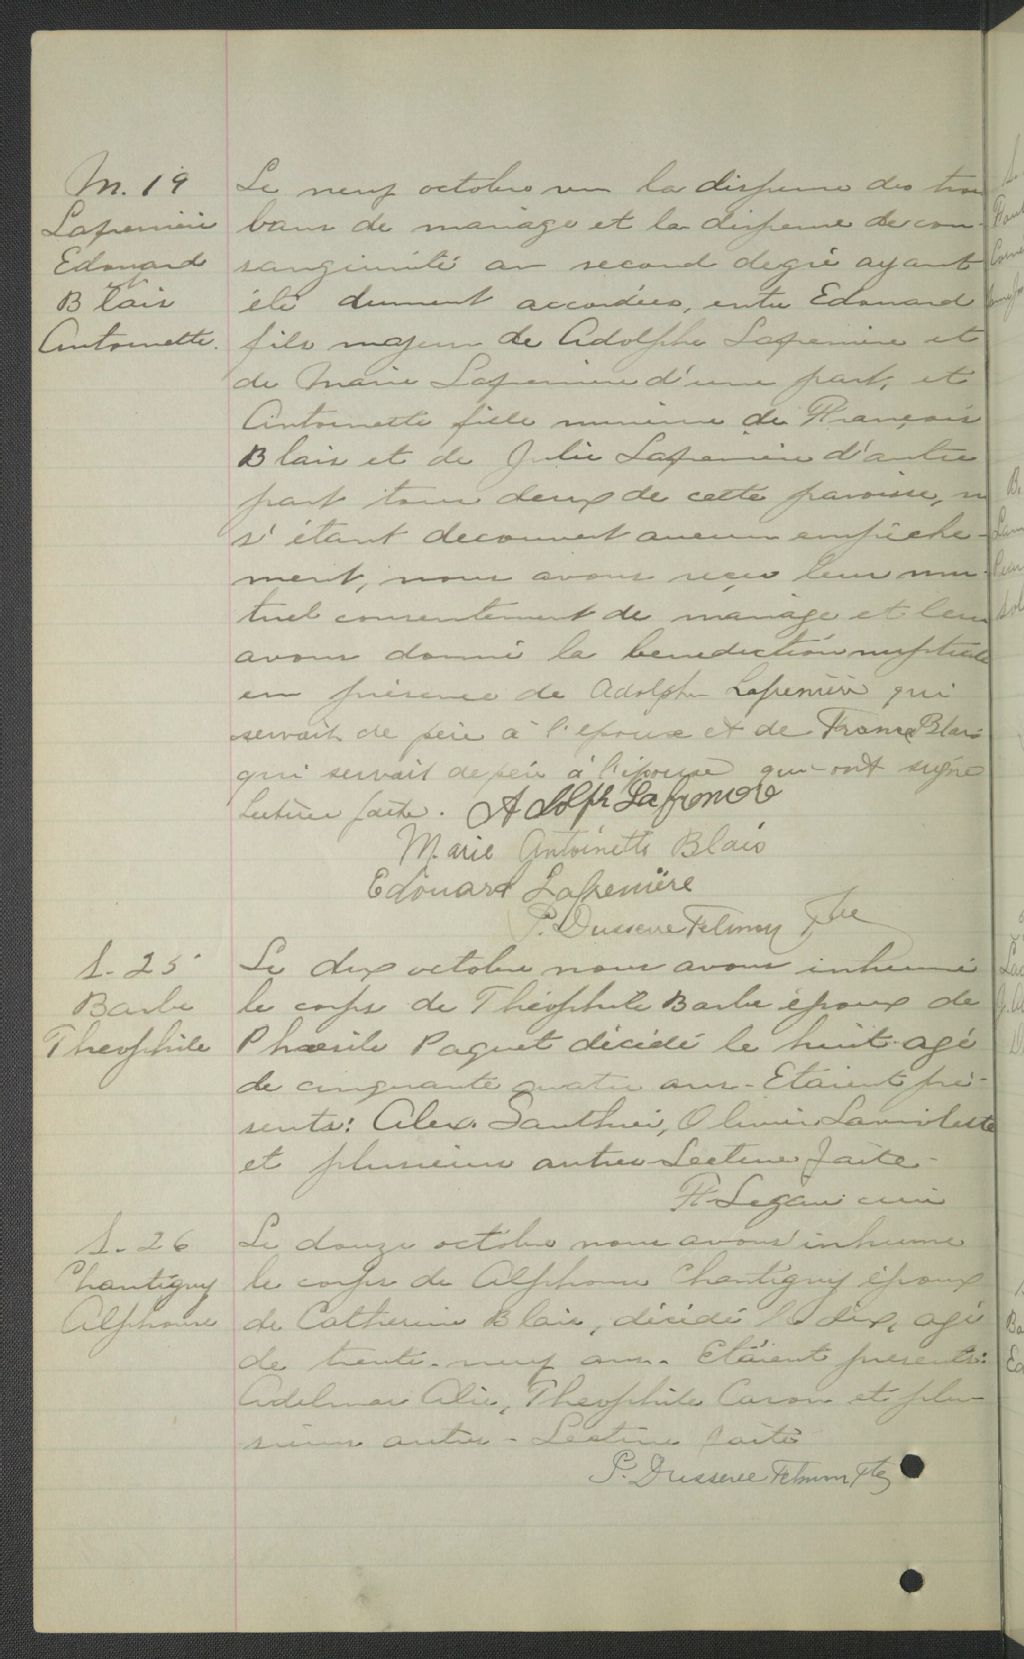 M. 19
Lafrenière
Edouard
et
Blais
Antoinette.
Le neuf octobre vu la dispense des trois
bans de mariage et la dispense de con-
sanguinité au second degré ayant
été dument accordées, entre Edouard
fils majeur de Adolphe Lafrenière et
de Marie Lafrenière d'une part, et
Antoinette fille mineure de François
Blais et de Julie Lafrenière d'autre
part tous deux de cette paroisse, ne
s'étant decouvert aucun empêche-
ment, nous avons reçu leur mu-
tuel consentement de mariage et leur
avons donné la benediction nuptiale
en présence de Adolphe Lafrenière qui
servait de père à l'époux et de Blais
qui servait de père à l'épouse qui ont signé
Lecture faite. Adolph Lafrenière
Marie Antoinette Blais
Edouard Lafrenière
P. Dusserre Telmon Ptre
S. 25
Barbe
Théophile
Le dix octobre nous avons inhumé
le corps de Théophile Barbe époux de
Paquet décédé le huit agé
de cinquante quatre ans - Etaient pré-
sents: Alex. Gauthier, Olivier
et plusieurs autres Lecture faite -
curé
S. 26
Chantigny
Alphonse
Le douze octobre nous avons inhumé
le corps de Alphonse Chantigny époux
de Catherine Blais, décédé le dix, agé
de trente-neuf ans. Etaient présents:
Alie, Théophile Caron et plu-
sieurs autres - Lecture faite
P. Dusserre Telmon Ptre